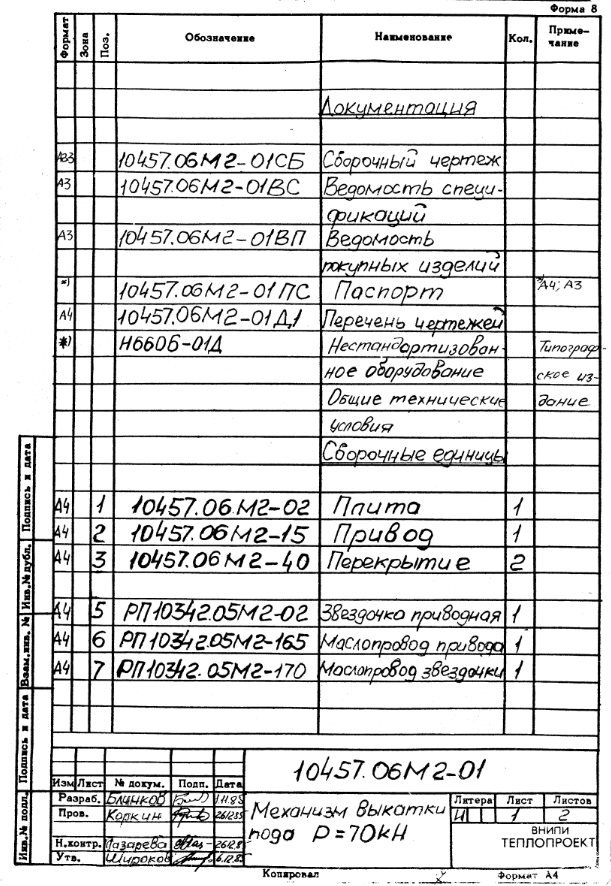 Форма 8
Формат Зона Поз. Обозначение Наименование Кол. Приме-
чание
Документация
А2з 10457.06М2-01СБ Сборочный чертеж
А3 10457.06М2-01ВС Ведомость специ-
фикаций
А3 10457.06М2-01ВП Ведомость
покупных изделий
*) 10457.06М2-01ПС Паспорт *)А4; А3
А4 10457.06М2-01Д1 Перечень чертежей
*) Н6606-01Д Нестандартизован- Типограф-
ное оборудование ское из-
Общие технические дание
условия
Сборочные единицы
А4 1 10457.06.М2-02 Плита 1
А4 2 10457.06.М2-15 Привод 1
А4 3 10457.06М2-40 Перекрытие 2
А4 5 РП10342.05М2-02 Звездочка приводная 1
А4 6 РП10342.05М2-165 Маслопровод привода 1
А4 7 РП10342.05М2-170 Маслопровод звездочки 1
Инв.№ подл. Подпись и дата Взам.инв. № Инв.№дубл. Подпись и дата
10457.06М2-01
Изм Лист № докум. Подп. Дата
Разраб. Блинков
Пров. Коркин
Н.контр. Лазарева
Утв. Широков
Механизм выкатки
пода Р=70кН
Литера Лист Листов
И 1 2
ВНИПИ
ТЕПЛОПРОЕКТ
Копировал Формат А4